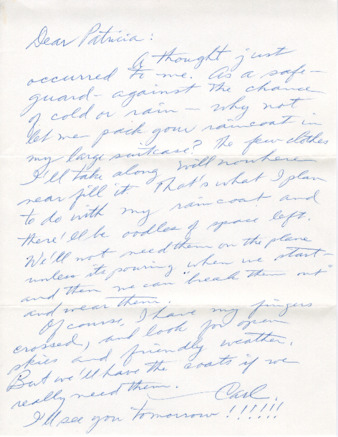 Dear Patricia:
A thought just
occurred to me. As a safe-
guard - against the chance
of cold or rain - why not
let me pack your raincoat in
my large suitcase? The few clothes
I'll take along will nowhere
near fill it. That's what I plan
to do with my raincoat and
there'll be oodles of space left.
We'll not need them on the plane
unless its pouring when we start -
and then we can "break them out"
and wear them.
Of course, I have my fingers
crossed, and look for open
skies and friendly weather.
But we'll have the coats if we
really need them.
Carl.
I'll see you tomorrow!!!!!!